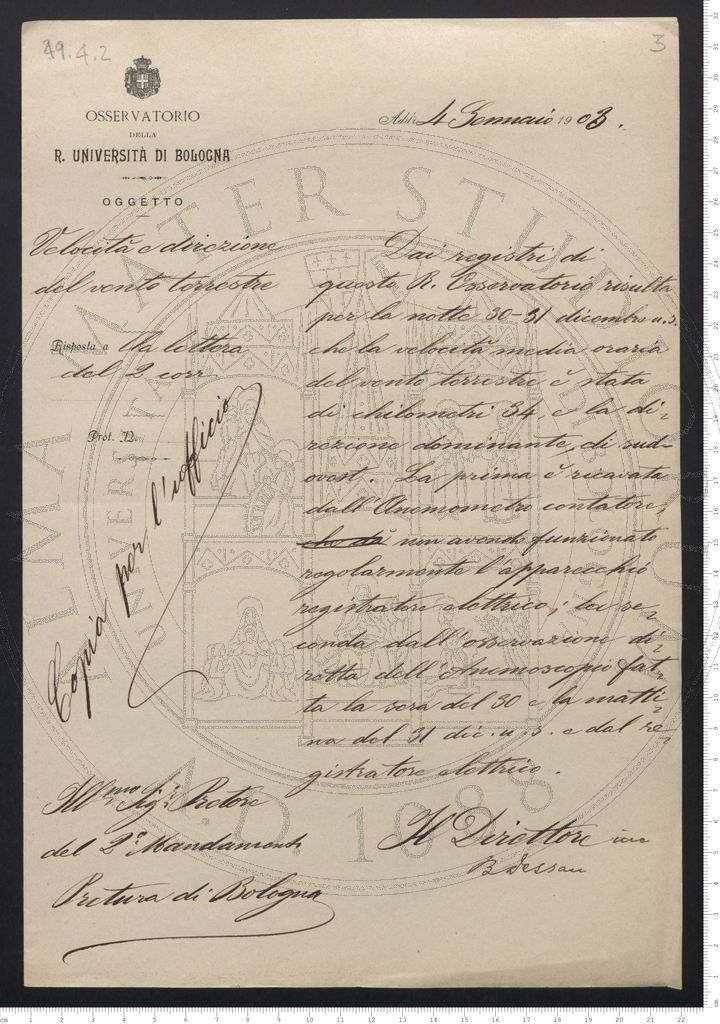 49.4.2
3
OSSERVATORIO
DELLA
R. UNIVERSITÀ DI BOLOGNA
OGGETTO
Addì 4 Gennaio 1903.
Velocità e direzione
del vento terrestre
Risposta a lla lettera
del 2 corr
Prot. N.
Copia per l'ufficio
Dai registri di
questo R. Osservatorio risulta
per la notte 30-31 dicembre u.s.
che la velocità media oraria
del vento terrestre è stata
di chilometri 34, e la di-
rezione dominante, di sud-
ovest. La prima è ricavata
dall'Anemometro contatore,
non avendo funzionato
regolarmente l'apparecchio
registratore elettrico; la se-
conda dall'osservazione di-
retta dell'Anemoscopio fat-
ta la sera del 30 e la matti-
na del 31 dic. u.s. e dal re-
gistratore elettrico.
Ill.mo Sig.r Pretore
del 2° Mandamento
Pretura di Bologna
Il Direttore inc
B Dessau
ALMA MATER STUDIORUM
A.D. 1088